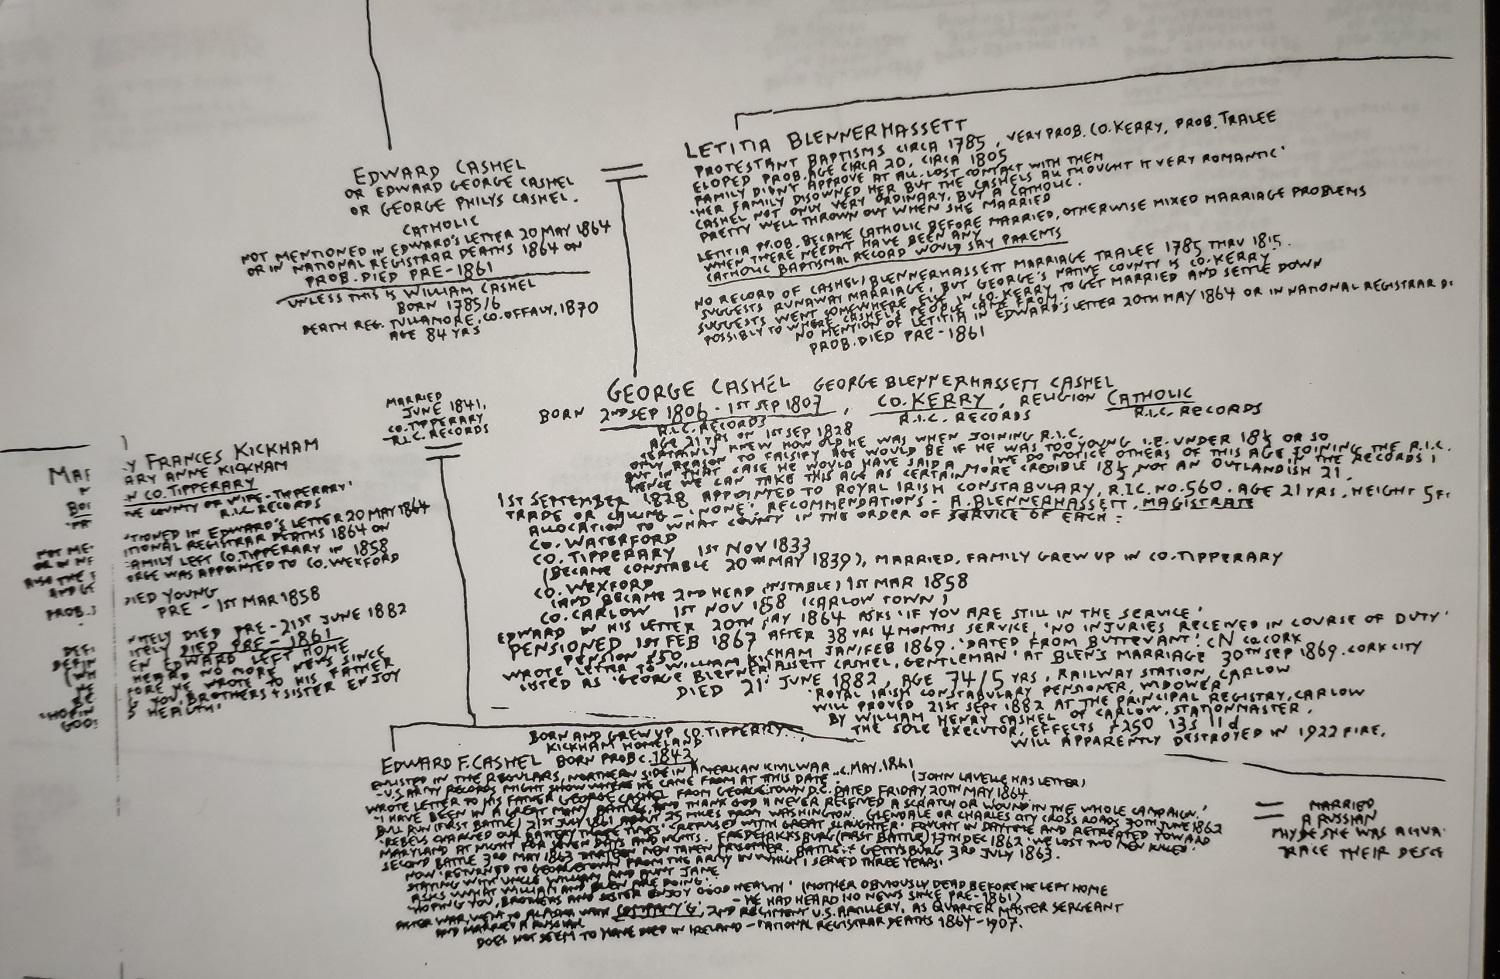 EDWARD CASHEL
OR EDWARD GEORGE CASHEL
OR GEORGE PHILYS CASHEL.
CATHOLIC
NOT MENTIONED IN EDWARD'S LETTER 20 MAY 1864
OR IN NATIONAL REGISTRAR DEATHS 1864 ON
PROB. DIED PRE-1861
UNLESS THIS IS WILLIAM CASHEL
BORN 1785/6
DEATH REG. TULLAMORE, CO. OFFALY, 1870
AGE 84 YRS
LETITIA BLENNERHASSETT
PROTESTANT BAPTISMS CIRCA 1785, VERY PROB. CO. KERRY, PROB. TRALEE
ELOPED PROB. AGE CIRCA 20, CIRCA 1805
FAMILY DIDN'T APPROVE AT ALL. LOST CONTACT WITH THEM
'HER FAMILY DISOWNED HER BUT THE CASHELS ALL THOUGHT IT VERY ROMANTIC'
CASHEL NOT ONLY VERY ORDINARY, BUT A CATHOLIC.
PRETTY WELL THROWN OUT WHEN SHE MARRIED
LETITIA PROB. BECAME CATHOLIC BEFORE MARRIED, OTHERWISE MIXED MARRIAGE PROBLEMS
WHEN THERE NEEDN'T HAVE BEEN ANY
CATHOLIC BAPTISMAL RECORD WOULD SAY PARENTS
NO RECORD OF CASHEL/BLENNERHASSETT MARRIAGE TRALEE 1785 THRU 1815.
SUGGESTS RUNAWAY MARRIAGE, BUT GEORGE'S NATIVE COUNTY IS CO. KERRY
SUGGESTS WENT SOMEWHERE ELSE IN CO. KERRY TO GET MARRIED AND SETTLE DOWN
POSSIBLY TO WHERE CASHEL'S PEOPLE CAME FROM.
NO MENTION OF LETITIA IN EDWARD'S LETTER 20TH MAY 1864 OR IN NATIONAL REGISTRAR D
PROB. DIED PRE-1861
MARRIED
JUNE 1841,
CO. TIPPERARY
R.I.C. RECORDS
GEORGE CASHEL GEORGE BLENNERHASSETT CASHEL
BORN 2ND SEP 1806 - 1ST SEP 1807, CO. KERRY, RELIGION CATHOLIC
R.I.C. RECORDS R.I.C. RECORDS R.I.C. RECORDS
AGE 21 YRS ON 1ST SEP 1828
CERTAINLY KNEW HOW OLD HE WAS WHEN JOINING R.I.C.
ONLY REASON TO FALSIFY AGE WOULD BE IF HE WAS TOO YOUNG I.E. UNDER 18½ OR SO
BUT IN THAT CASE HE WOULD HAVE SAID A MORE CREDIBLE 18½ NOT AN OUTLANDISH 21.
(WE DO NOTICE OTHERS OF THIS AGE JOINING THE R.I.C. IN THE RECORDS)
HENCE WE CAN TAKE THIS AGE AS CERTAIN.
1ST SEPTEMBER 1828 APPOINTED TO ROYAL IRISH CONSTABULARY, R.I.C. NO. 560. AGE 21 YRS, HEIGHT 5 F
TRADE OR CALLING - 'NONE'. RECOMMENDATIONS - A. BLENNERHASSETT, MAGISTRATE
ALLOCATION TO WHAT COUNTY IN THE ORDER OF SERVICE OF EACH:
CO. WATERFORD
CO. TIPPERARY 1ST NOV 1833
(BECAME CONSTABLE 20TH MAY 1839), MARRIED, FAMILY GREW UP IN CO. TIPPERARY
CO. WEXFORD
(AND BECAME 2ND HEAD CONSTABLE) 1ST MAR 1858
CO. CARLOW 1ST NOV 1858 (CARLOW TOWN)
EDWARD IN HIS LETTER 20TH MAY 1864 ASKS 'IF YOU ARE STILL IN THE SERVICE'
PENSIONED 1ST FEB 1867 AFTER 38 YRS 4 MONTHS SERVICE, 'NO INJURIES RECEIVED IN COURSE OF DUTY'
PENSION £50
WROTE LETTER TO WILLIAM KICKHAM JAN/FEB 1869. 'DATED FROM BUTTEVANT' CN CO CORK
LISTED AS 'GEORGE BLENNERHASSETT CASHEL, GENTLEMAN' AT BLEN'S MARRIAGE 30TH SEP 1869. CORK CITY
DIED 21ST JUNE 1882, AGE 74/5 YRS, RAILWAY STATION, CARLOW
'ROYAL IRISH CONSTABULARY PENSIONER, WIDOWER'
WILL PROVED 21ST SEPT 1882 AT THE PRINCIPAL REGISTRY, CARLOW
BY WILLIAM HENRY CASHEL OF CARLOW, STATIONMASTER,
THE SOLE EXECUTOR, EFFECTS £250 13S 11d
WILL APPARENTLY DESTROYED IN 1922 FIRE.
Y FRANCES KICKHAM
ARY ANNE KICKHAM
N CO. TIPPERARY
VE COUNTY OF WIFE - TIPPERARY'
R.I.C. RECORDS
TIONED IN EDWARD'S LETTER 20 MAY 1864
TIONAL REGISTRAR DEATHS 1864 ON
FAMILY LEFT CO. TIPPERARY IN 1858
ORGE WAS APPOINTED TO CO. WEXFORD
DIED YOUNG
PROB. PRE - 1ST MAR 1858
ITELY DIED PRE - 21ST JUNE 1882
ITELY DIED PRE - 1861
EN EDWARD LEFT HOME
HEARD NO MORE NEWS SINCE
FORE HE WROTE TO HIS FATHER
G YOU, BROTHERS + SISTER ENJOY
S HEALTH'
BORN AND GREW UP CO. TIPPERARY
KICKHAM HOMELAND
EDWARD F. CASHEL BORN PROB C. 1842
ENLISTED IN THE REGULARS, NORTHERN SIDE IN AMERICAN CIVIL WAR C. MAY. 1861
- U.S. ARMY RECORDS MIGHT SHOW WHERE HE CAME FROM AT THIS DATE. (JOHN LAVELLE HAS LETTER)
WROTE LETTER TO HIS FATHER GEORGE CASHEL FROM GEORGETOWN D.C. DATED FRIDAY 20TH MAY 1864
'I HAVE BEEN IN A GREAT MANY BATTLES, AND THANK GOD I NEVER RECEIVED A SCRATCH OR WOUND IN THE WHOLE CAMPAIGN.'
BULL RUN (FIRST BATTLE) 21ST JULY 1861 ABOUT 25 MILES FROM WASHINGTON. GLENDALE OR CHARLES CITY CROSS ROADS 30TH JUNE 1862
'REBELS CHARGED OUR BATTERY THREE TIMES' 'REPULSED WITH GREAT SLAUGHTER' FOUGHT IN DAYTIME AND RETREATED TOWARD
MARYLAND AT NIGHT FOR SEVEN DAYS AND NIGHTS. FREDERICKSBURG (FIRST BATTLE) 13TH DEC 1862 'WE LOST TWO MEN KILLED'
SECOND BATTLE 3RD MAY 1863 THIRTEEN MEN TAKEN PRISONER. BATTLE OF GETTYSBURG 3RD JULY 1863.
NOW 'RETURNED TO GEORGETOWN FROM THE ARMY IN WHICH I SERVED THREE YEARS'
STAYING WITH UNCLE WILLIAM AND AUNT JANE
ASKS WHAT WILLIAM AND BLEN ARE DOING.
'HOPING YOU, BROTHERS AND SISTER ENJOY GOOD HEALTH' (MOTHER OBVIOUSLY DEAD BEFORE HE LEFT HOME
- HE HAD HEARD NO NEWS SINCE PRE-1861)
AFTER WAR, WENT TO ALASKA WITH COMPANY 'G', 2ND REGIMENT U.S. ARTILLERY, AS QUARTER MASTER SERGEANT
AND MARRIED A RUSSIAN
DOES NOT SEEM TO HAVE DIED IN IRELAND - NATIONAL REGISTRAR DEATHS 1864-1907.
MARRIED
A RUSSIAN
MAYBE SHE WAS
TRACE THEIR DESCE